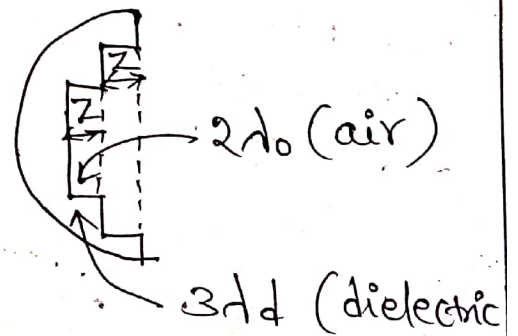 Z
Z
2λ0 (air)
3λd (dielectric